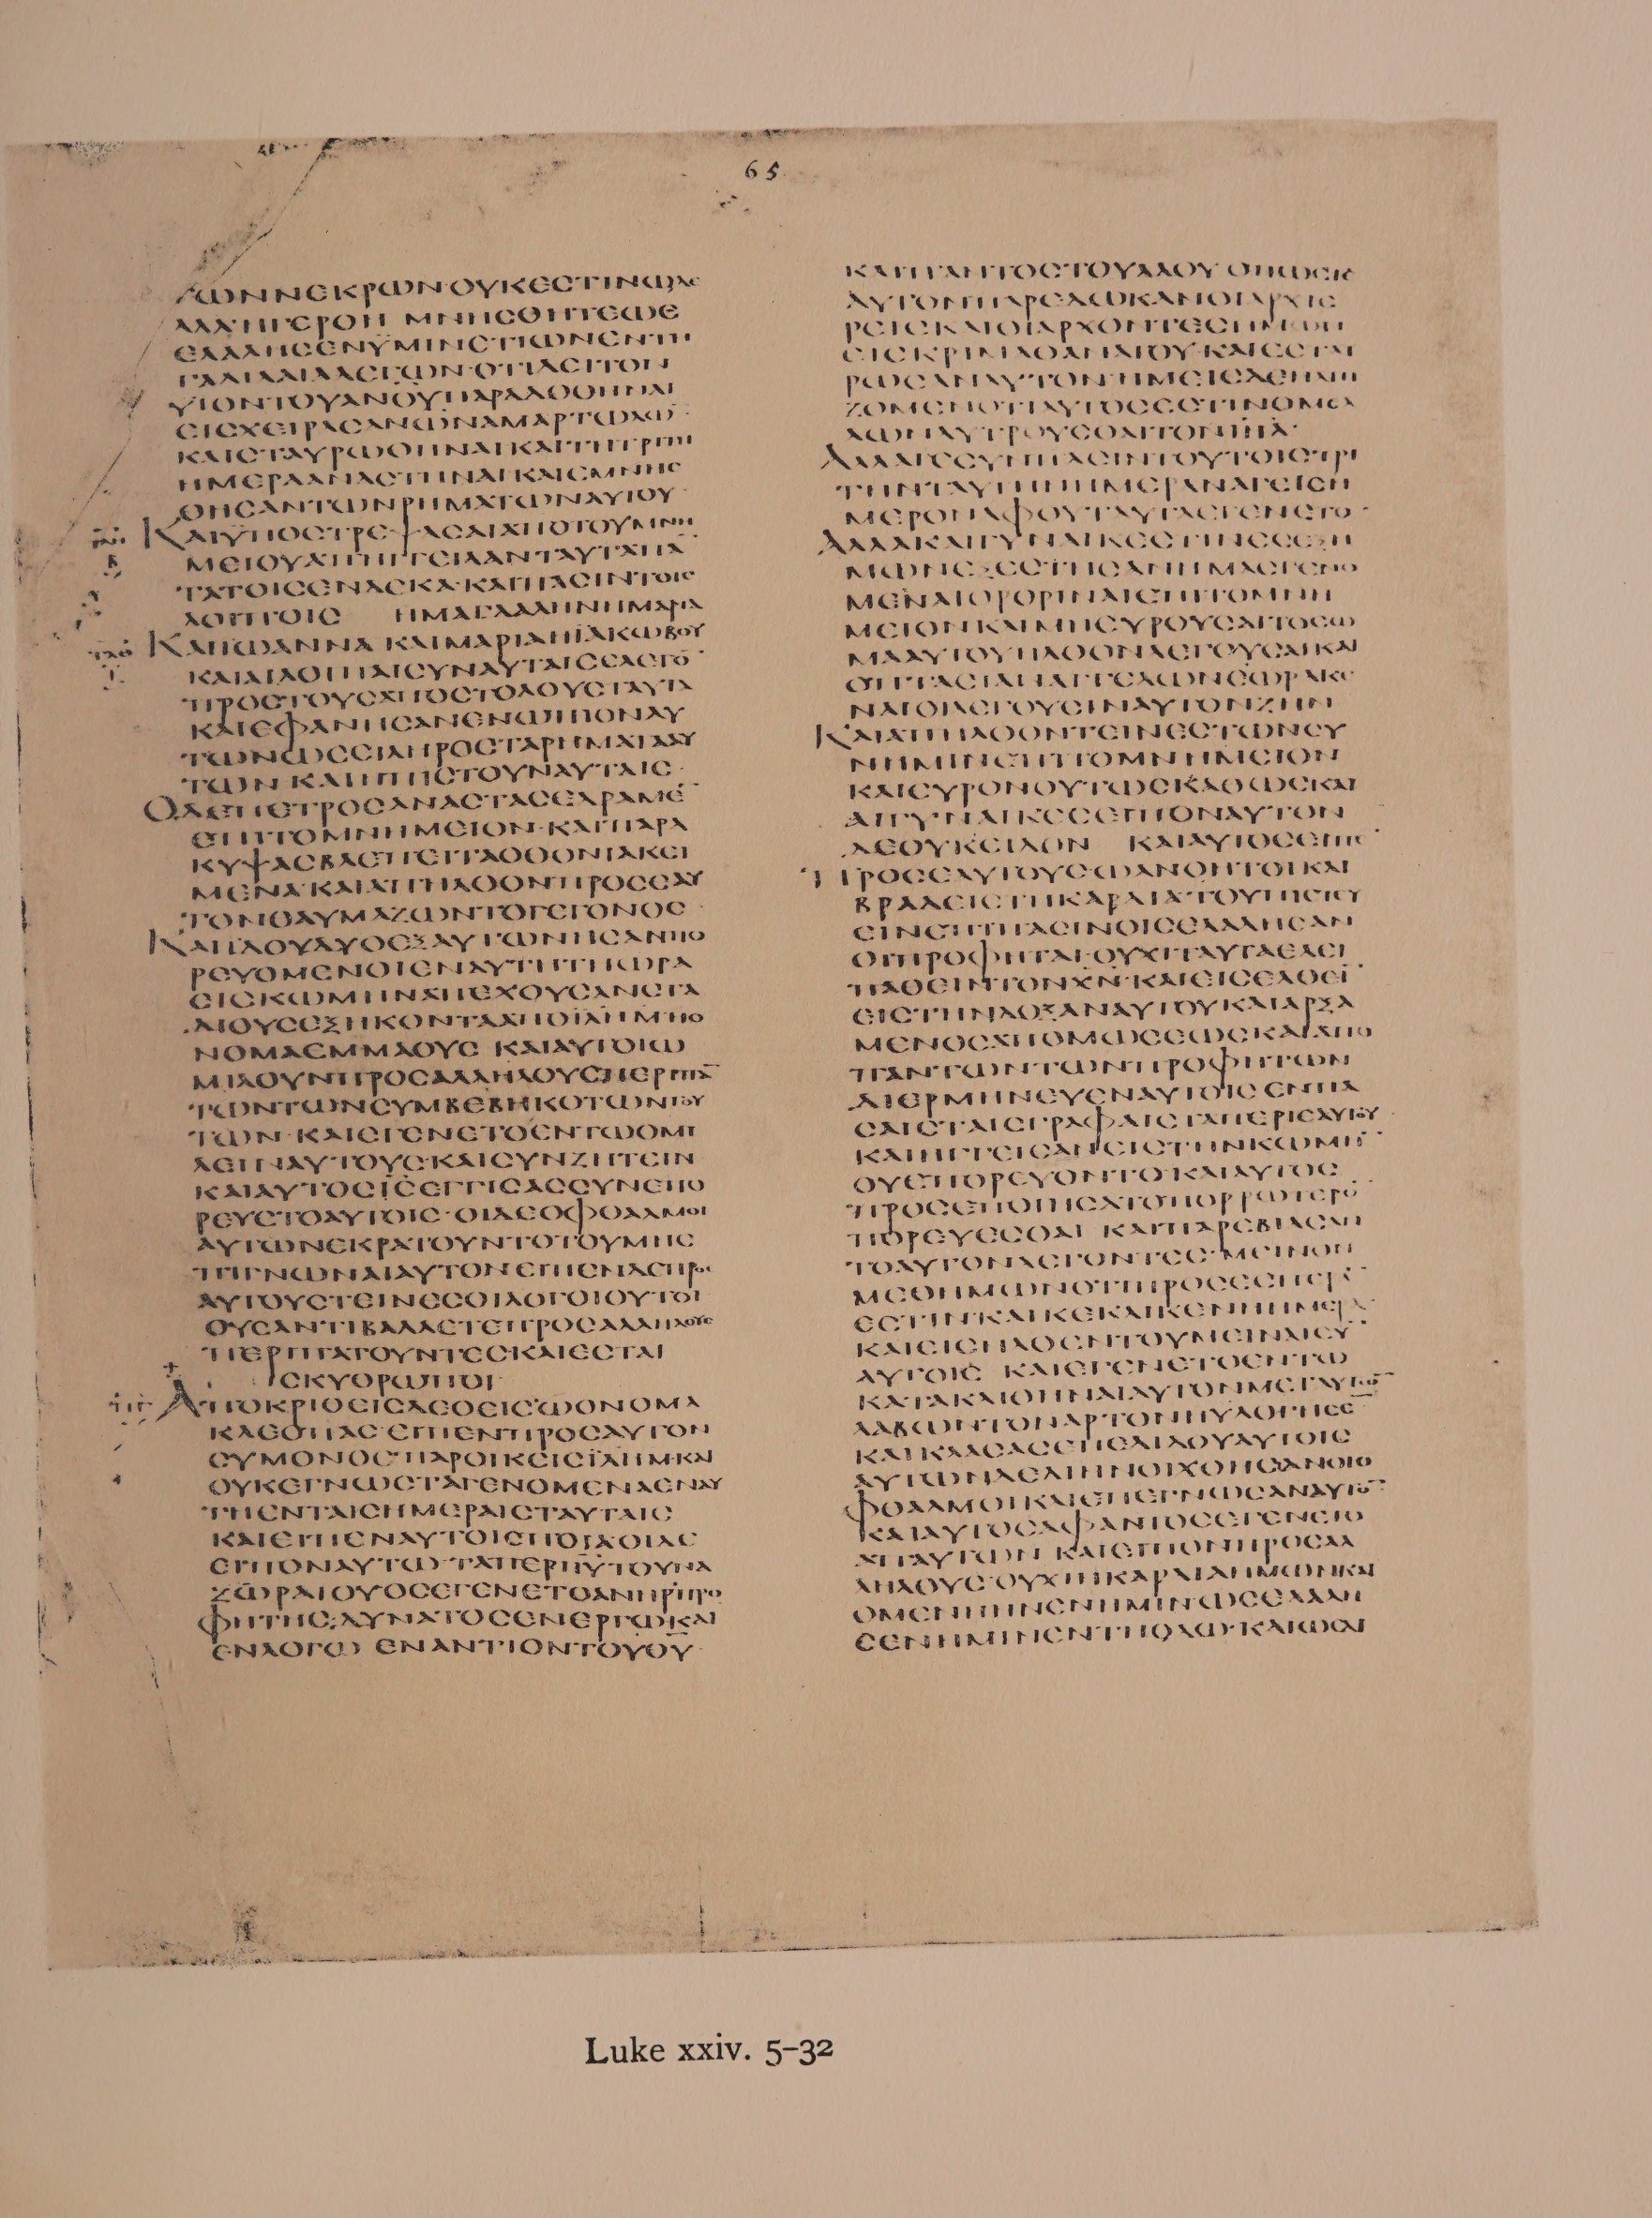 ΤΩΝΝΕΚΡΩΝ·ΟΥΚΕϹΤΙΝΩΔΕ
ΑΛΛΗΓΕΡΘΗ ΜΝΗϹΘΗΤΕΩϹ
ΕΛΑΛΗϹΕΝΫΜΙΝΕΤΙΩΝΕΝΤΗ
ΓΑΛΙΛΑΙΑΛΕΓΩΝ·ΟΤΙΔΕΙΤΟΝ
ΥΙΟΝΤΟΥΑΝΟΥΠΑΡΑΔΟΘΗΝΑΙ
ΕΙϹΧΕΙΡΑϹΑΝΩΝΑΜΑΡΤΩΛΩ̄
ΚΑΙϹΤΑΥΡΩΘΗΝΑΙΚΑΙΤΗΤΡΙΤΗ
ΗΜΕΡΑΑΝΑϹΤΗΝΑΙΚΑΙΕΜΝΗϹ
ΘΗϹΑΝΤΩΝΡΗΜΑΤΩΝΑΥΤΟΥ
ΚΑΙΫΠΟϹΤΡΕΨΑϹΑΙΑΠΟΤΟΥΜΝΗ
ΜΕΙΟΥΑΠΗΓΓΕΙΛΑΝΤΑΥΤΑΠᾹ
ΤΑΤΟΙϹΕΝΔΕΚΑ·ΚΑΙΠΑϹΙΝΤΟΙϹ
ΛΟΙΠΟΙϹ ΗΜΑΓΔΑΛΗΝΗΜΑΡΙΑ
ΚΑΙΙΩΑΝΝΑ ΚΑΙΜΑΡΙΑΗΪΑΚΩΒΟΥ
ΚΑΙΑΙΛΟΙΠΑΙϹΥΝΑΥΤΑΙϹΕΛΕΓΟ̄
ΠΡΟϹΤΟΥϹΑΠΟϹΤΟΛΟΥϹΤΑΥΤΑ
ΚΑΙΕΦΑΝΗϹΑΝΕΝΩΠΙΟΝΑΥ
ΤΩΝΩϹΕΙΛΗΡΟϹΤΑΡΗΜΑΤΑΑΥ
ΤΩΝ ΚΑΙΗΠΙϹΤΟΥΝΑΥΤΑΙϹ·
ΟΔΕΠΕΤΡΟϹΑΝΑϹΤΑϹΕΔΡΑΜΕ̄
ΕΠΙΤΟΜΝΗΜΕΙΟΝ·ΚΑΙΠΑΡΑ
ΚΥΨΑϹΒΛΕΠΕΙΤΑΟΘΟΝΙΑΚΕΙ
ΜΕΝΑ·ΚΑΙΑΠΗΛΘΟΝΠΡΟϹΕΑΥ
ΤΟΝΘΑΥΜΑΖΩΝΤΟΓΕΓΟΝΟϹ·
ΚΑΙΪΔΟΥΔΥΟΕΞΑΥΤΩΝΗϹΑΝΠΟ
ΡΕΥΟΜΕΝΟΙΕΝΑΥΤΗΤΗΩΡΑ
ΕΙϹΚΩΜΗΝΑΠΕΧΟΥϹΑΝϹΤΑ
ΔΙΟΥϹΕΞΗΚΟΝΤΑΑΠΟΪΛΗΜΗΟ
ΝΟΜΑΕΜΜΑΟΥϹ ΚΑΙΑΥΤΟΙΩ
ΜΙΛΟΥΝΠΡΟϹΑΛΛΗΛΟΥϹΠΕΡΙΠᾹ
ΤΩΝΤΩΝϹΥΜΒΕΒΗΚΟΤΩΝΤΟΥ
ΤΩΝ·ΚΑΙΕΓΕΝΕΤΟΕΝΤΩΟΜΙ
ΛΕΙΝΑΥΤΟΥϹ·ΚΑΙϹΥΝΖΗΤΕΙΝ
ΚΑΙΑΥΤΟϹΙϹΕΓΓΙϹΑϹϹΥΝΕΠΟ
ΡΕΥΕΤΟΑΥΤΟΙϹ·ΟΙΔΕΟΦΘΑΛΜΟΙ
ΑΥΤΩΝΕΚΡΑΤΟΥΝΤΟΤΟΥΜΗΕ
ΠΙΓΝΩΝΑΙΑΥΤΟΝΕΙΠΕΝΔΕΠΡΟϹ
ΑΥΤΟΥϹΤΕΙΝΕϹΟΙΛΟΓΟΙΟΥΤΟΙ
ΟΥϹΑΝΤΙΒΑΛΛΕΤΕΠΡΟϹΑΛΛΗΛΟΥϹ
ΠΕΡΙΠΑΤΟΥΝΤΕϹΚΑΙΕϹΤΑΙ
ϹΚΥΘΡΩΠΟΙ
ΑΠΟΚΡΙΘΕΙϹΔΕΟΕΙϹΩΟΝΟΜΑ
ΚΛΕΟΠΑϹ·ΕΙΠΕΝΠΡΟϹΑΥΤΟΝ
ϹΥΜΟΝΟϹΠΑΡΟΙΚΕΙϹΪΛΗΜΚΑΙ
ΟΥΚΕΓΝΩϹΤΑΓΕΝΟΜΕΝΑΕΝΑΥ
ΤΗΕΝΤΑΙϹΗΜΕΡΑΙϹΤΑΥΤΑΙϹ
ΚΑΙΕΙΠΕΝΑΥΤΟΙϹΠΟΙΑΟΙΔΕ
ΕΙΠΟΝΑΥΤΩ·ΤΑΠΕΡΙΙΥΤΟΥΝΑ
ΖΩΡΑΙΟΥΟϹΕΓΕΝΕΤΟΑΝΗΡΠΡΟ
ΦΗΤΗϹ·ΔΥΝΑΤΟϹΕΝΕΡΓΩΚΑΙ
ΕΝΛΟΓΩ ΕΝΑΝΤΙΟΝΤΟΥΘΥ
65.
ΚΑΙΠΑΝΤΟϹΤΟΥΛΑΟΥ ΟΠΩϹΤΕ
ΑΥΤΟΝΠΑΡΕΔΩΚΑΝΟΙΑΡΧΙΕ
ΡΕΙϹΚΑΙΟΙΑΡΧΟΝΤΕϹΗΜΩΝ
ΕΙϹΚΡΙΜΑΘΑΝΑΤΟΥ·ΚΑΙΕϹΤΑΥ
ΡΩϹΑΝΑΥΤΟΝ·ΗΜΕΙϹΔΕΗΛΠΙ
ΖΟΜΕΝΟΤΙΑΥΤΟϹΕϹΤΙΝΟΜΕΛ
ΛΩΝΛΥΤΡΟΥϹΘΑΙΤΟΝΙΗΛ·
ΑΛΛΑΓΕϹΥΝΠΑϹΙΝΤΟΥΤΟΙϹΤΡΙ
ΤΗΝΤΑΥΤΗΝΗΜΕΡΑΝΑΓΕΙϹΗ
ΜΕΡΟΝΑΦΟΥΤΑΥΤΑΕΓΕΝΕΤΟ·
ΑΛΛΑΚΑΙΓΥΝΑΙΚΕϹΤΙΝΕϹΕΞΗ
ΜΩΝΕΞΕϹΤΗϹΑΝΗΜΑϹΓΕΝΟ
ΜΕΝΑΙΟΡΘΡΙΝΑΙΕΠΙΤΟΜΝΗ
ΜΕΙΟΝΚΑΙΜΗΕΥΡΟΥϹΑΙΤΟϹΩ
ΜΑΑΥΤΟΥΗΛΘΟΝΛΕΓΟΥϹΑΙΚΑΙ
ΟΠΤΑϹΙΑΝΑΓΓΕΛΩΝΕΩΡΑΚΕ
ΝΑΙΟΙΛΕΓΟΥϹΙΝΑΥΤΟΝΖΗΝ
ΚΑΙΑΠΗΛΘΟΝΤΕΙΝΕϹΤΩΝϹΥ
ΝΗΜΙΝΕΠΙΤΟΜΝΗΜΕΙΟΝ
ΚΑΙΕΥΡΟΝΟΥΤΩϹΚΑΘΩϹΚΑΙ
ΑΙΓΥΝΑΙΚΕϹΕΙΠΟΝΑΥΤΟΝ
ΔΕΟΥΚΕΙΔΟΝ ΚΑΙΑΥΤΟϹΕΙΠΕ̄
ΠΡΟϹΕΑΥΤΟΥϹΩΑΝΟΗΤΟΙΚΑΙ
ΒΡΑΔΕΙϹΤΗΚΑΡΔΙΑ·ΤΟΥΠΙϹΤΕΥ
ΕΙΝΕΠΙΠΑϹΙΝΟΙϹΕΛΑΛΗϹΑΝ
ΟΙΠΡΟΦΗΤΑΙ·ΟΥΧΙΤΑΥΤΑΕΔΕΙ
ΠΑΘΕΙΝΤΟΝΧΝ·ΚΑΙΕΙϹΕΛΘΕῙ
ΕΙϹΤΗΝΔΟΞΑΝΑΥΤΟΥΚΑΙΑΡΞΑ
ΜΕΝΟϹΑΠΟΜΩϹΕΩϹΚΑΙΑΠΟ
ΠΑΝΤΩΝΤΩΝΠΡΟΦΗΤΩΝ
ΔΙΕΡΜΗΝΕΥΕΝΑΥΤΟΙϹΕΝΠΑ
ϹΑΙϹΤΑΙϹΓΡΑΦΑΙϹΤΑΠΕΡΙΕΑΥΤΟΥ
ΚΑΙΗΓΓΕΙϹΑΝΕΙϹΤΗΝΚΩΜΗ̄
ΟΥΕΠΟΡΕΥΟΝΤΟ·ΚΑΙΑΥΤΟϹ
ΠΡΟϹΕΠΟΙΕΙΤΟΠΟΡΡΩΤΕΡΟ̄
ΠΟΡΕΥΕϹΘΑΙ ΚΑΙΠΑΡΕΒΙΑϹΑΝ
ΤΟΑΥΤΟΝΛΕΓΟΝΤΕϹ·ΜΕΙΝΟΝ
ΜΕΘΗΜΩΝΟΤΙΠΡΟϹΕϹΠΕΡᾹ
ΕϹΤΙΝ·ΚΑΙΚΕΚΛΙΚΕΝΗΗΜΕΡΑ·
ΚΑΙΕΙϹΗΛΘΕΝΤΟΥΜΕΙΝΑΙϹῩ
ΑΥΤΟΙϹ ΚΑΙΕΓΕΝΕΤΟΕΝΤΩ
ΚΑΤΑΚΛΙΘΗΝΑΙΑΥΤΟΝΜΕΤΑΥΤΩ̄
ΛΑΒΩΝΤΟΝΑΡΤΟΝΗΥΛΟΓΗϹΕ
ΚΑΙΚΛΑϹΑϹΕΠΕΔΙΔΟΥΑΥΤΟΙϹ
ΑΥΤΩΝΔΕΔΙΗΝΟΙΧΘΗϹΑΝΟΙΟ
ΦΘΑΛΜΟΙΚΑΙΕΠΕΓΝΩϹΑΝΑΥΤΟ̄
ΚΑΙΑΥΤΟϹΑΦΑΝΤΟϹΕΓΕΝΕΤΟ
ΑΠΑΥΤΩΝ ΚΑΙΕΙΠΟΝΠΡΟϹΑΛ
ΛΗΛΟΥϹ·ΟΥΧΙΗΚΑΡΔΙΑΗΜΩΝΚΑΙ
ΟΜΕΝΗΗΝΕΝΗΜΙΝΩϹΕΛΑΛΗ
ϹΕΝΗΜΙΝΕΝΤΗΟΔΩ·ΚΑΙΩϹΔΙ
Luke xxiv. 5–32